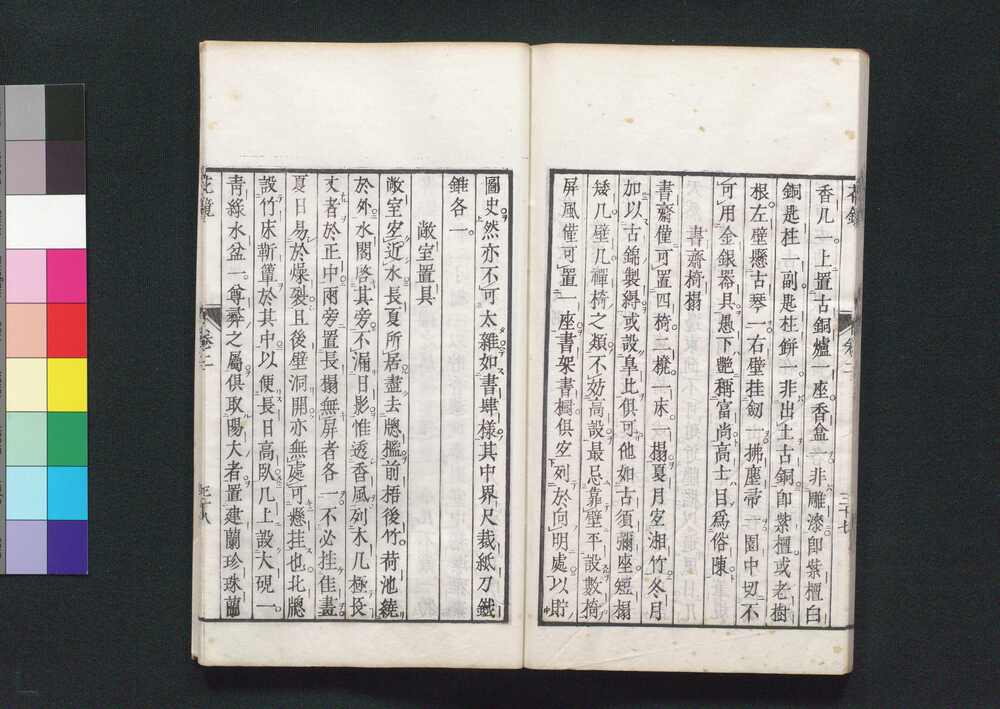 花鏡
卷二
三十七
香几一上置古銅爐一座香盒一非雕漆卽紫檀白
銅匙柱一副匙柱餅一非出土古銅卽紫檀或老樹
根左壁懸古琴一右壁挂劒一拂塵帚一園中切不
可用金銀器具愚下艶稱富尚高士目爲俗陳
書齋椅榻
書齋僅可置四椅三櫈一床一榻夏月宐湘竹冬月
加以古錦製縟或設皐比俱可他如古須彌座短榻
矮几壁几禪椅之類不妨高設最忌靠壁平設數椅
屏風僅可置一座書架書櫥俱宐列於向明處以貯
圖史然亦不可太雜如書肆樣其中界尺裁紙刀鐵
錐各一
敞室置具
敞室宐近水長夏所居盡去牕檻前梧後竹荷池繞
於外水閣啓其旁不漏日影惟透香風列木几極長
丈者於正中兩旁置長榻無屏者各一不必挂佳畫
夏日易於燥裂且後壁洞開亦無處可懸挂也北牕
設竹床蘄簟於其中以便長日高臥几上設大硯一
青綠水盆一尊彛之屬俱取陽大者置建蘭珍珠蘭
花鏡
卷二
三十八